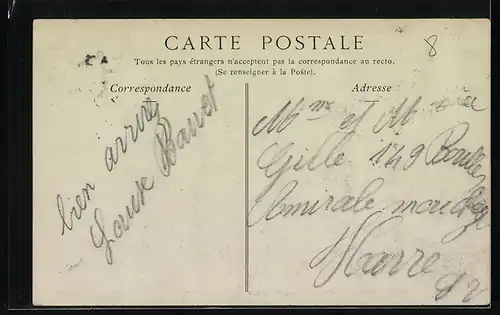 CARTE POSTALE
Tous les pays étrangers n'acceptent pas la correspondance au recto.
(Se renseigner à la Poste).
Correspondance
Adresse
8
bien arrivée
Louise Barret
Mme et M
Gille 149 Boule
Amirale mouchez
Havre